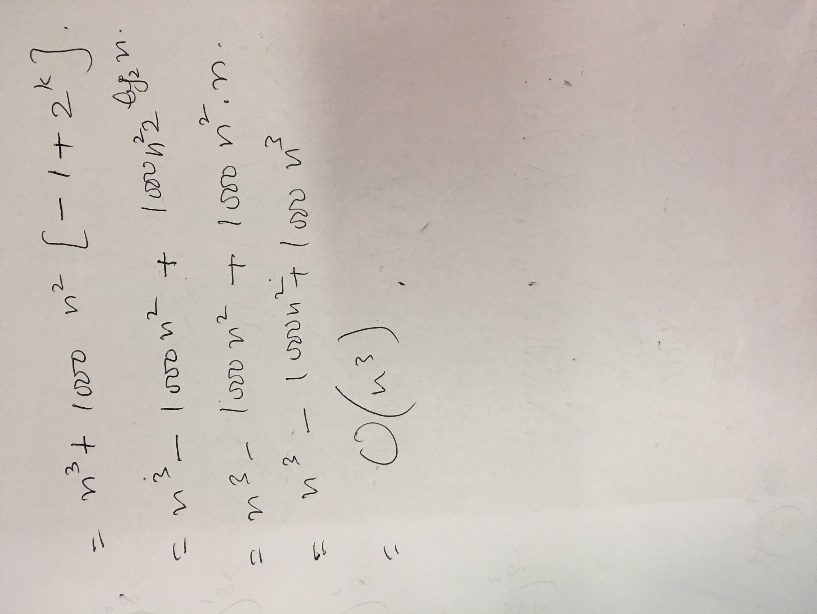 = n³ + 1000 n² [ - 1 + 2ᵏ ].
= n³ - 1000n² + 1000n² 2^log₂ n.
= n³ - 1000n² + 1000 n². n.
= n³ - 1000n² + 1000 n³
= O(n³)